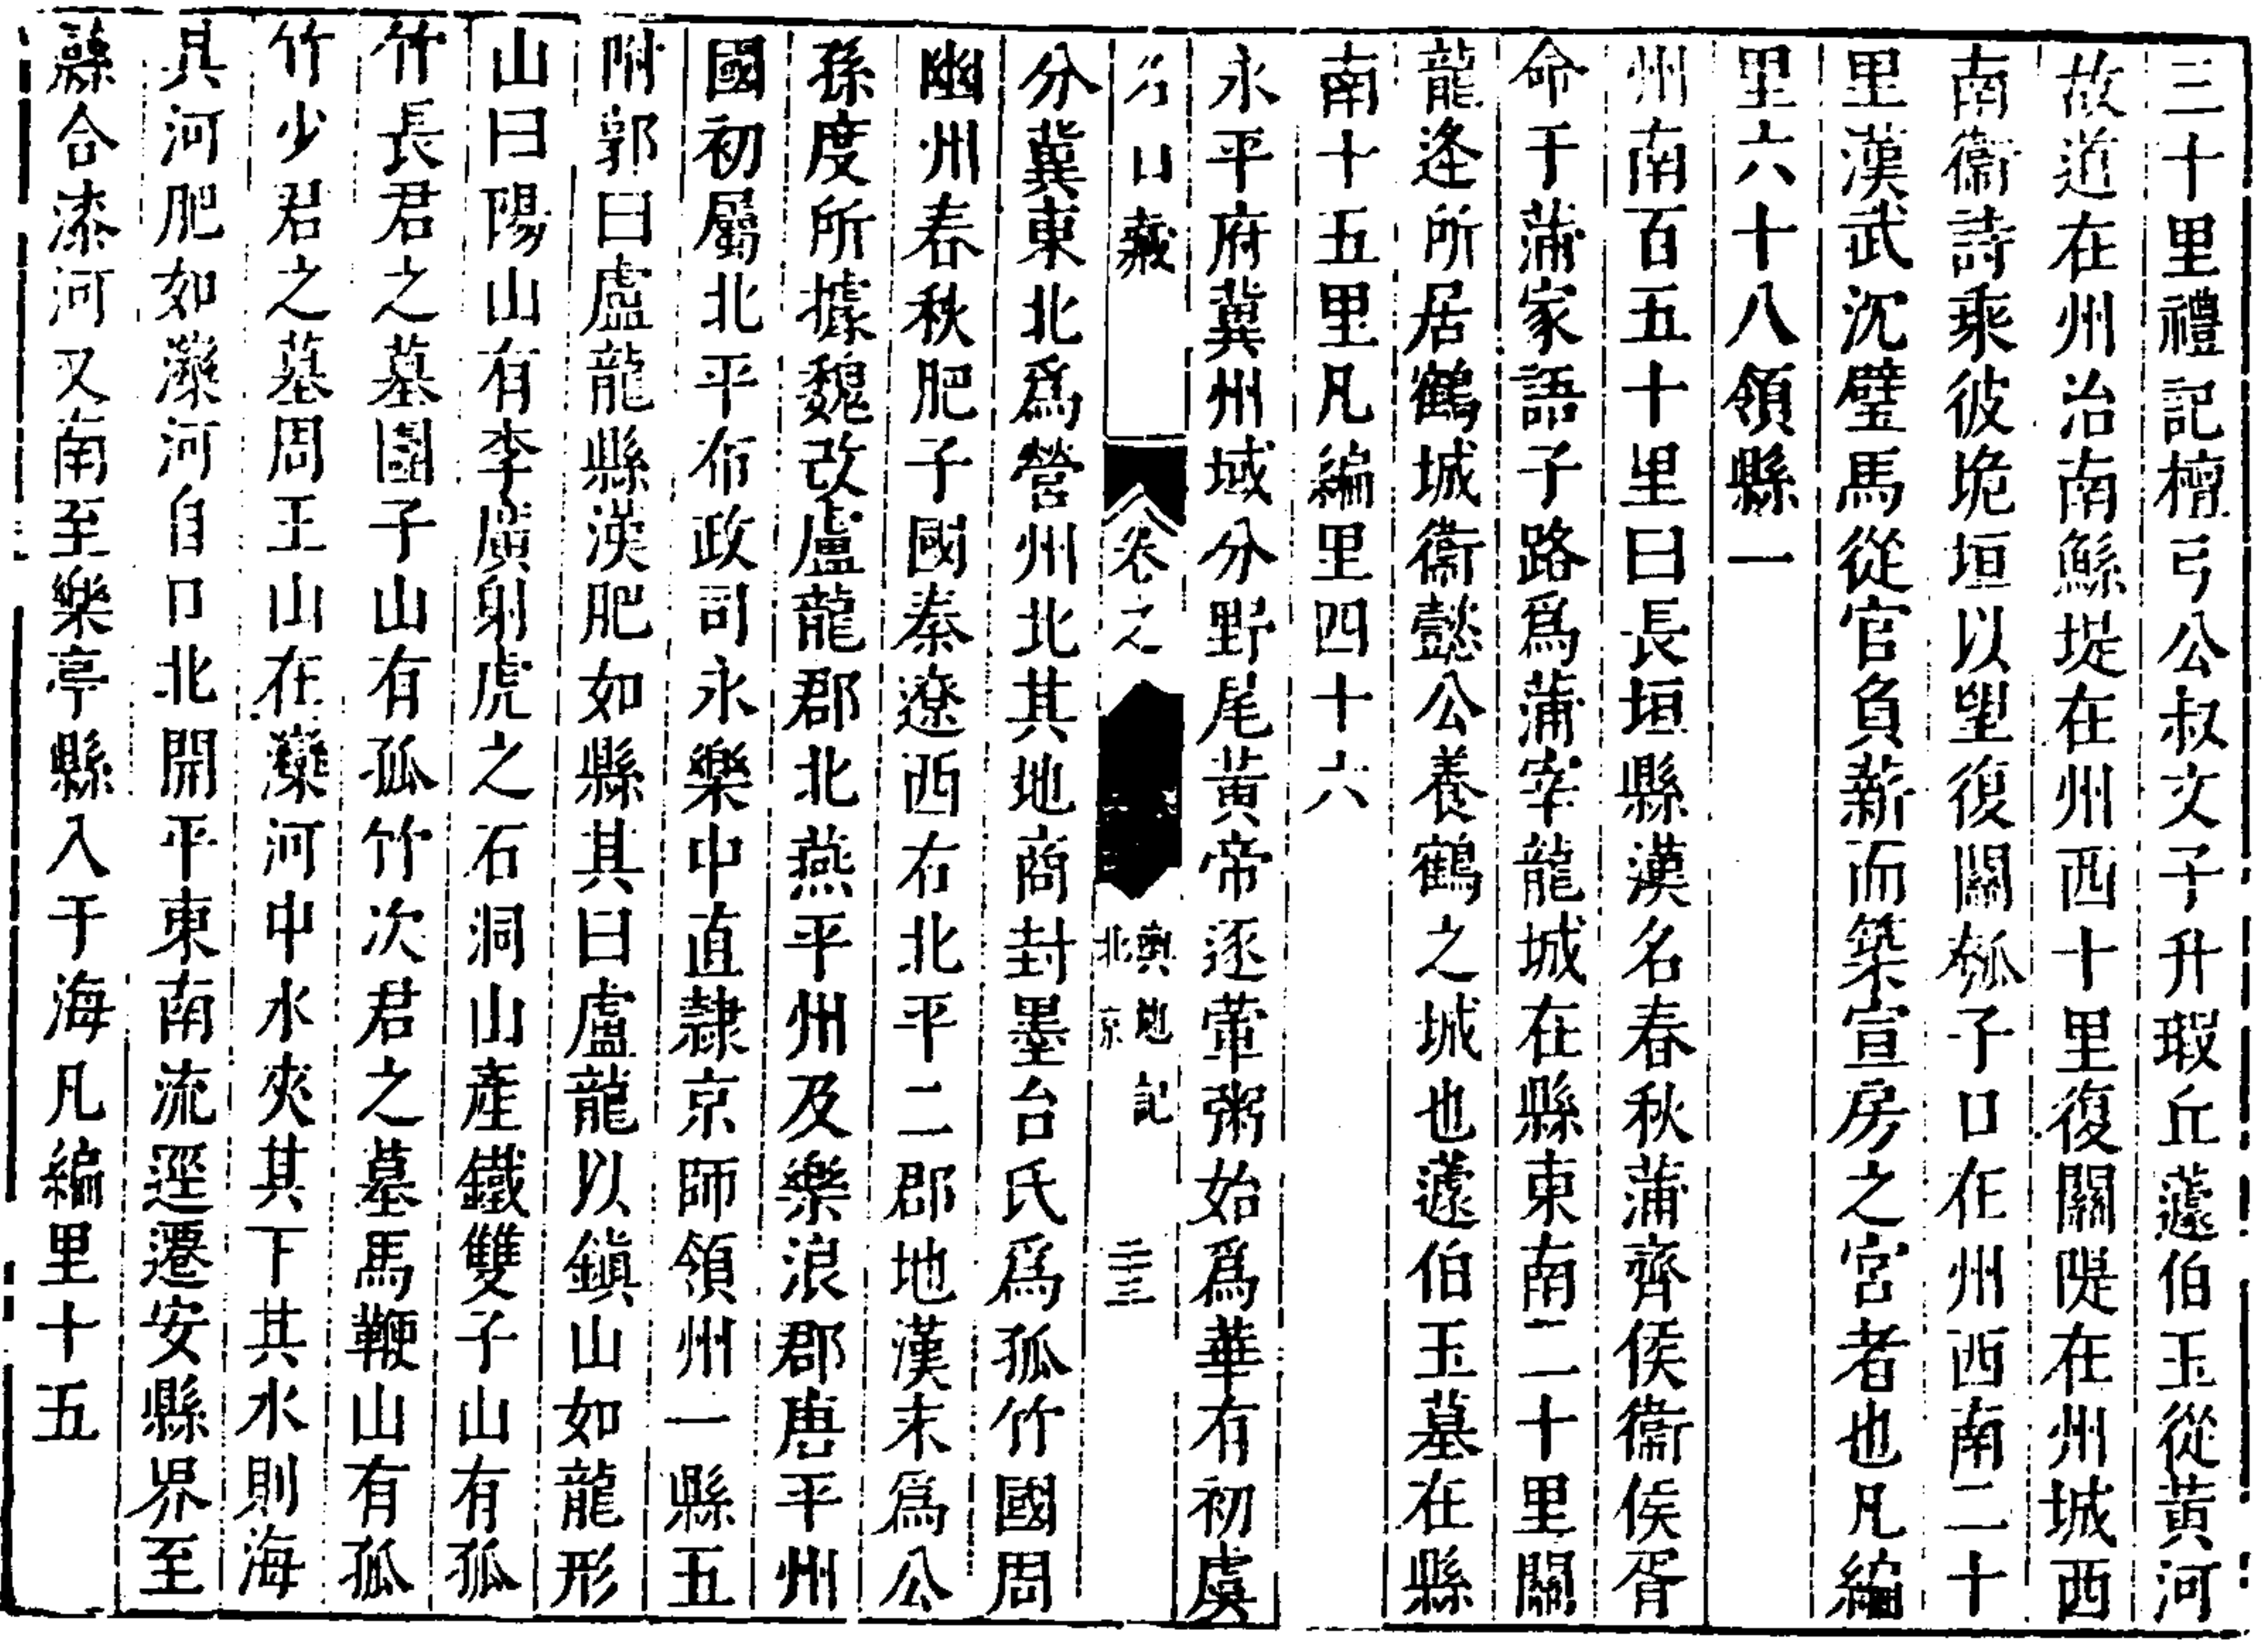 三十里禮記檀弓公叔文子升瑕丘蘧伯玉從黃河
故道在州治南鯀堤在州西十里復關隄在州城西
南衞詩乘彼垝垣以望復關瓠子口在州西南二十
里漢武沉璧馬從官負薪而築宣房之宮者也凡編
里六十八領縣一
州南百五十里曰長垣縣漢名春秋蒲齊侯衞侯胥
命于蒲家語子路爲蒲宰龍城在縣東南二十里關
龍逄所居鶴城衞懿公養鶴之城也蘧伯玉墓在縣
南十五里凡編里四十六
永平府冀州域分野尾黃帝逐葷粥始爲華有初虞
名山藏 卷之 輿地記 北京 二十三
分冀東北爲營州北其地商封墨台氏爲孤竹國周
幽州春秋肥子國秦遼西右北平二郡地漢末爲公
孫度所據魏改盧龍郡北燕平州及樂浪郡唐平州
國初屬北平布政司永樂中直隷京師領州一縣五
附郭曰盧龍縣漢肥如縣其曰盧龍以鎭山如龍形
山曰陽山有李廣射虎之石洞山產鐵雙子山有孤
竹長君之墓團子山有孤竹次君之墓馬鞭山有孤
竹少君之墓周王山在灤河中水夾其下其水則海
具河肥如灤河自口北開平東南流逕遷安縣界至
縣合漆河又南至樂亭縣入于海凡編里十五